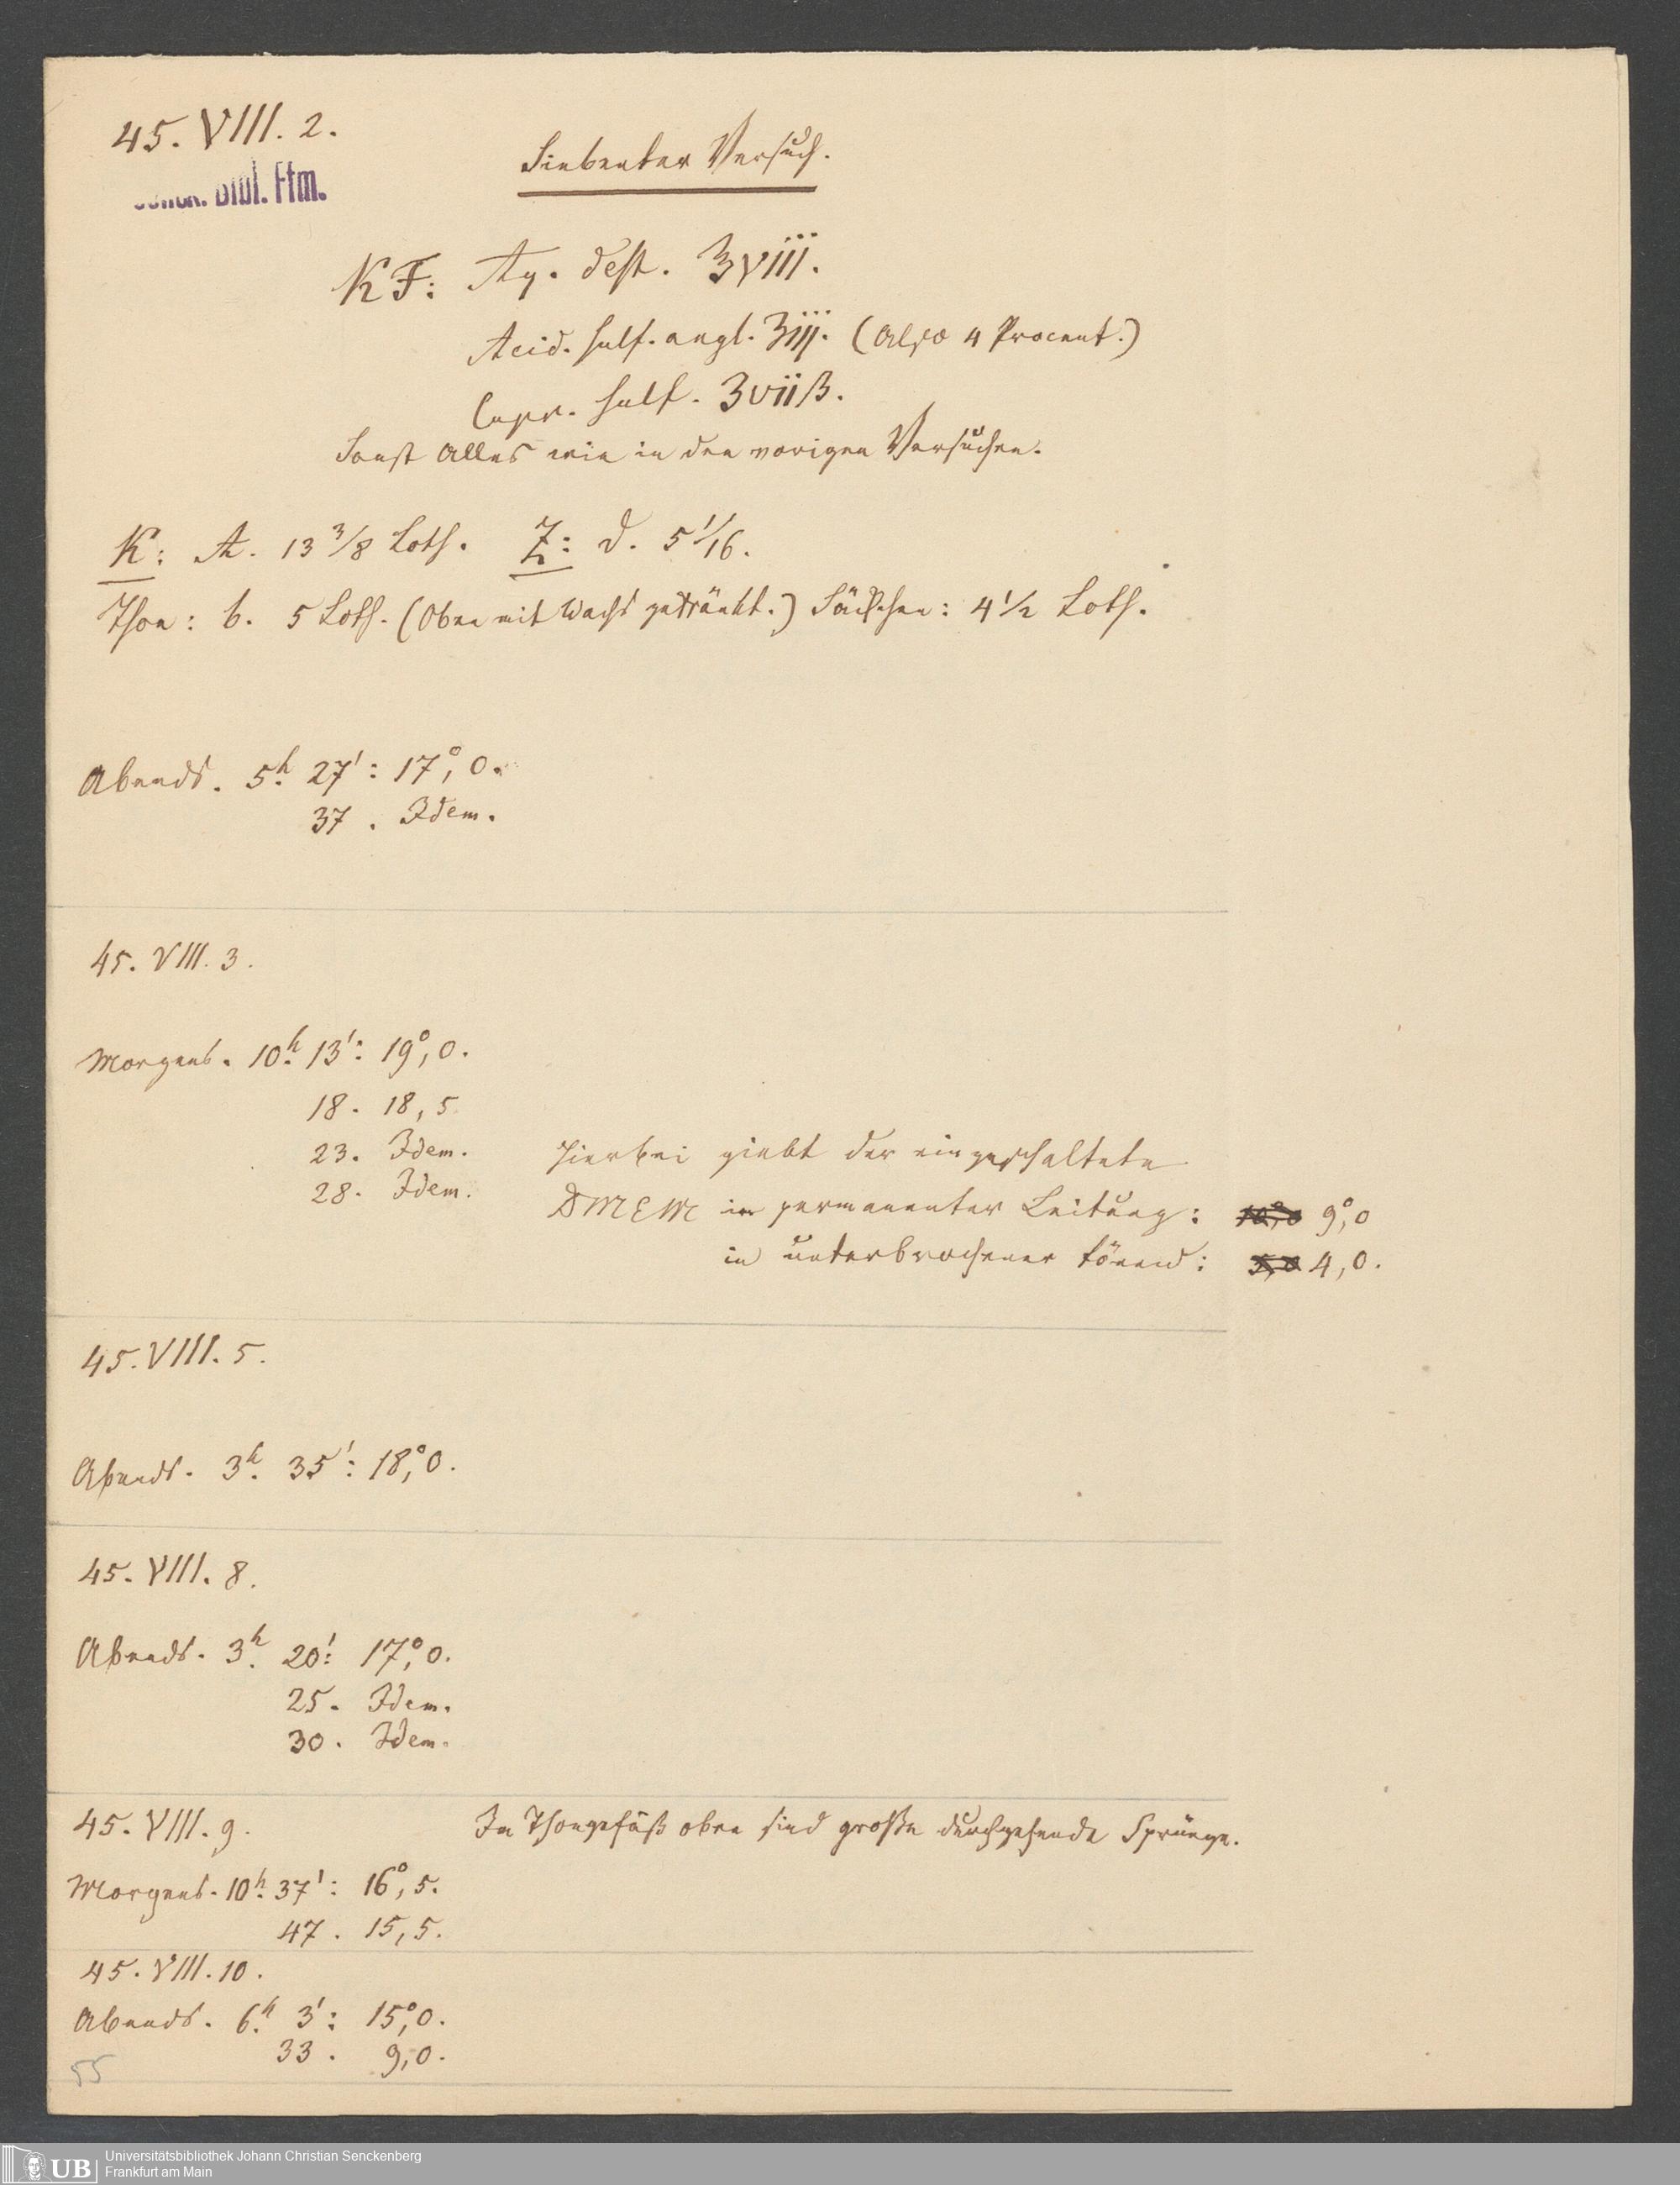 45. VIII. 2.
Siebenter Versuch.
Bibl. Ffm.
KF: Aq. dest. ℥viii.
Acid. sulf. angl. ʒiij. (Also 4 Procent.)
Cupr. sulf. ʒviiß.
Sonst Alles wie in den vorigen Versuchen.
K: A. 13 3/8 Loth. Z: d. 5 1/16.
Thon: b. 5 Loth. (Oben mit Wachs getränkt.) Säckchen: 4 1/2 Loth.
Abends. 5h. 27': 17°,0.
37. Idem.
45. VIII. 3.
Morgens. 10h. 13': 19°,0.
18. 18,5
23. Idem.
28. Idem.
Hierbei giebt der eingeschaltete
DMEM in permanenter Leitung: 10°,0 9°,0
in unterbrochener tönend: 5,0 4,0.
45. VIII. 5.
Abends. 3h. 35': 18°,0.
45. VIII. 8.
Abends. 3h. 20': 17°,0.
25. Idem.
30. Idem.
45. VIII. 9.
Im Thongefäß oben sind große durchgehende Sprünge.
Morgens. 10h. 37': 16°,5.
47. 15,5.
45. VIII. 10.
Abends. 6h. 3': 15°,0.
33. 9,0.
55
UB
Universitätsbibliothek Johann Christian Senckenberg
Frankfurt am Main